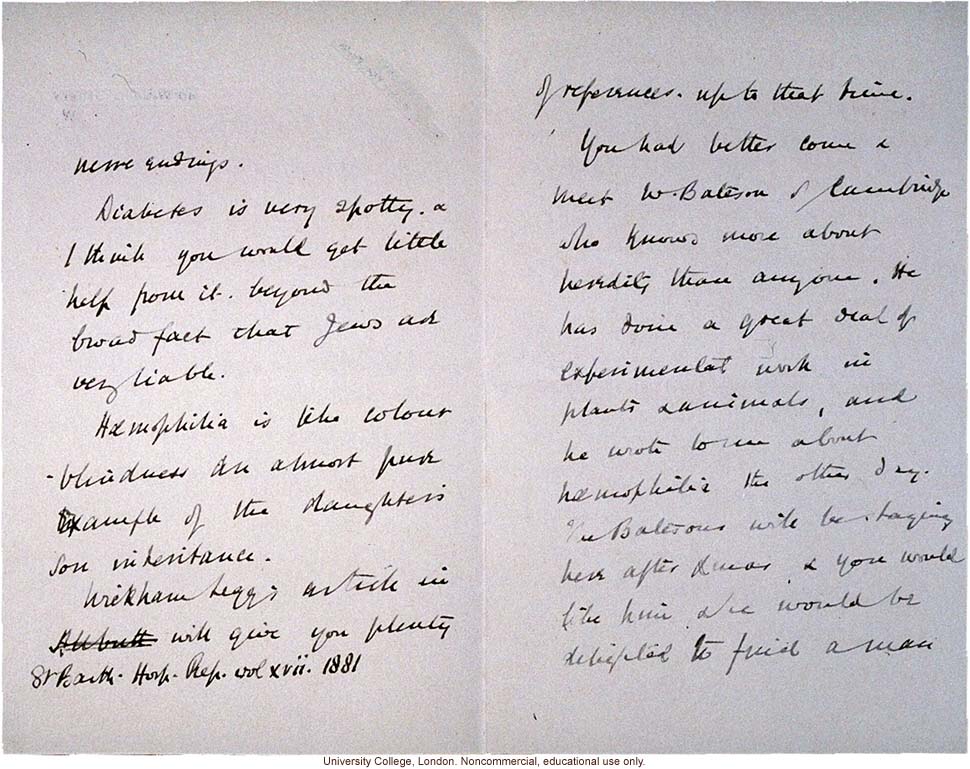 nerve endings.
Diabetes is very spotty. &
I think you would get little
help from it. beyond the
broad fact that Jews are
very liable.
Hæmophilia is like colour
-blindness an almost pure
Example of the daughter's
son inheritance.
Wickham Legg's article in
Allbutt will give you plenty
St Barth. Hosp. Rep. vol xvii. 1881
of references. up to that time.
You had better come &
meet W. Bateson of Cambridge
who knows more about
heredity than anyone. He
has done a great deal of
experimental work in
plants & animals, and
he wrote to me about
hæmophilia the other day.
The Batesons will be staying
here after Xmas & you would
like him & he would be
delighted to find a man
University College, London. Noncommercial, educational use only.